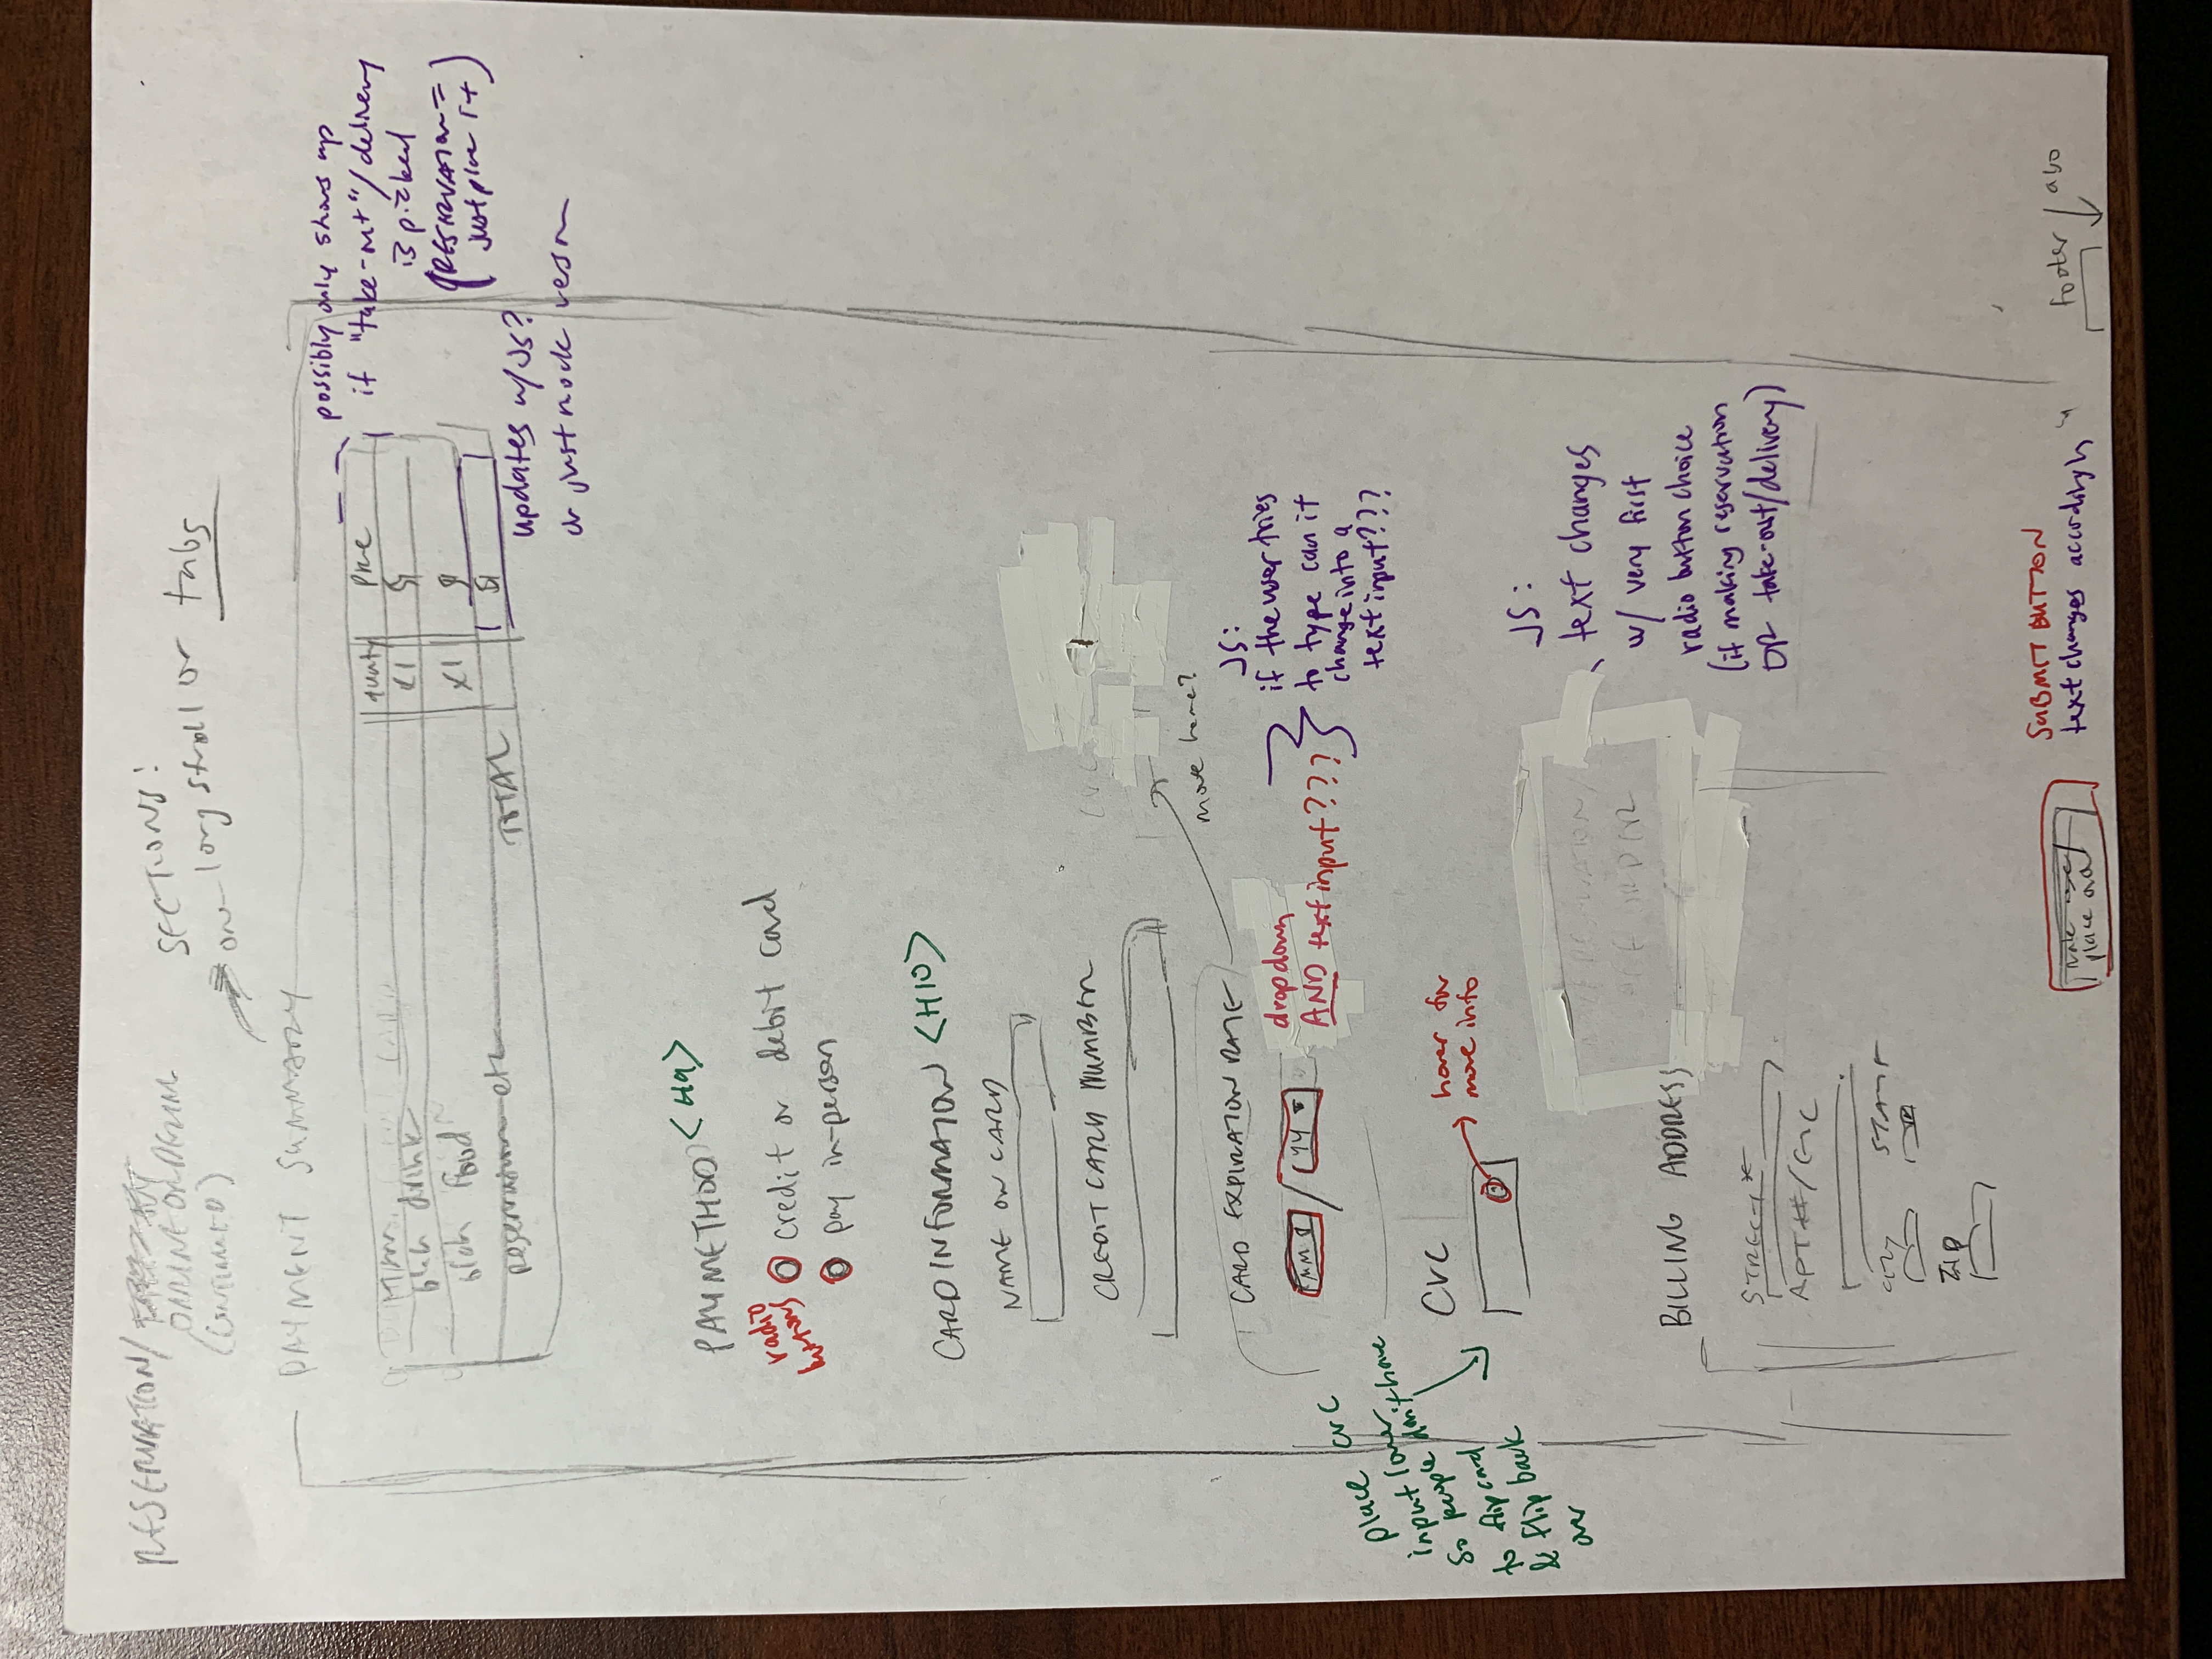 RESERVATION/
ONLINE ORDERING
(CONTINUED)
SECTIONS:
one long scroll or tabs
PAYMENT SUMMARY
possibly only shows up
if "take-out"/delivery
is picked
(RESERVATION =
just place it)
Item
quantity
Price
blah drink
x1
$
blah food
x1
$
reservation etc
TOTAL
$
updates w/JS?
or just mock version
PAY METHOD <H9>
radio
buttons
credit or debit card
pay in-person
CARD INFORMATION <H10>
NAME ON CARD
CREDIT CARD NUMBER
CVC
move here?
CARD EXPIRATION DATE
MM / YY
dropdown
AND text input???
JS:
if the user tries
to type can it
change into a
text input???
place cvc
input lower
so people don't have
to flip card
& flip back
over
CVC
?
hover for
more info
JS:
text changes
w/ very first
radio button choice
(if making reservation
OR take-out/delivery)
RESERVATION/
ORDER
BILLING ADDRESS
STREET*
APT #/etc
city
STATE
ZIP
place order
SUBMIT BUTTON
text changes accordingly
footer